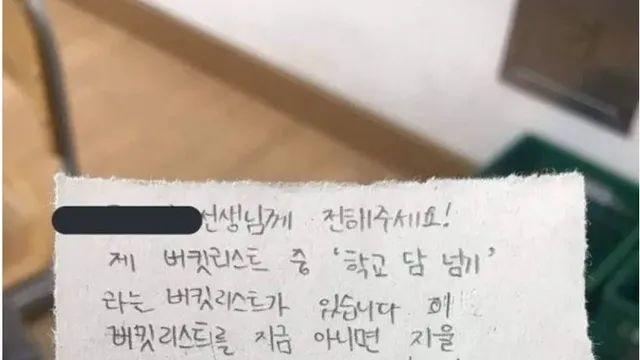 선생님께 전해주세요!
제 버킷리스트 중 '학교 담 넘기'
라는 버킷리스트가 있습니다 이
버킷리스트를 지금 아니면 지울